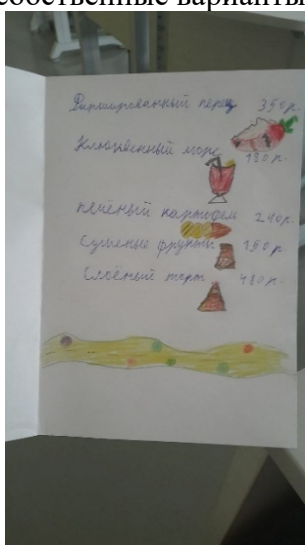 собственные варианты
Фаршированный перец 350р.
Клюквенный морс
180р.
печёный картофель 240р.
Сушеные фрукты 150р.
Слоёный торт 480р.